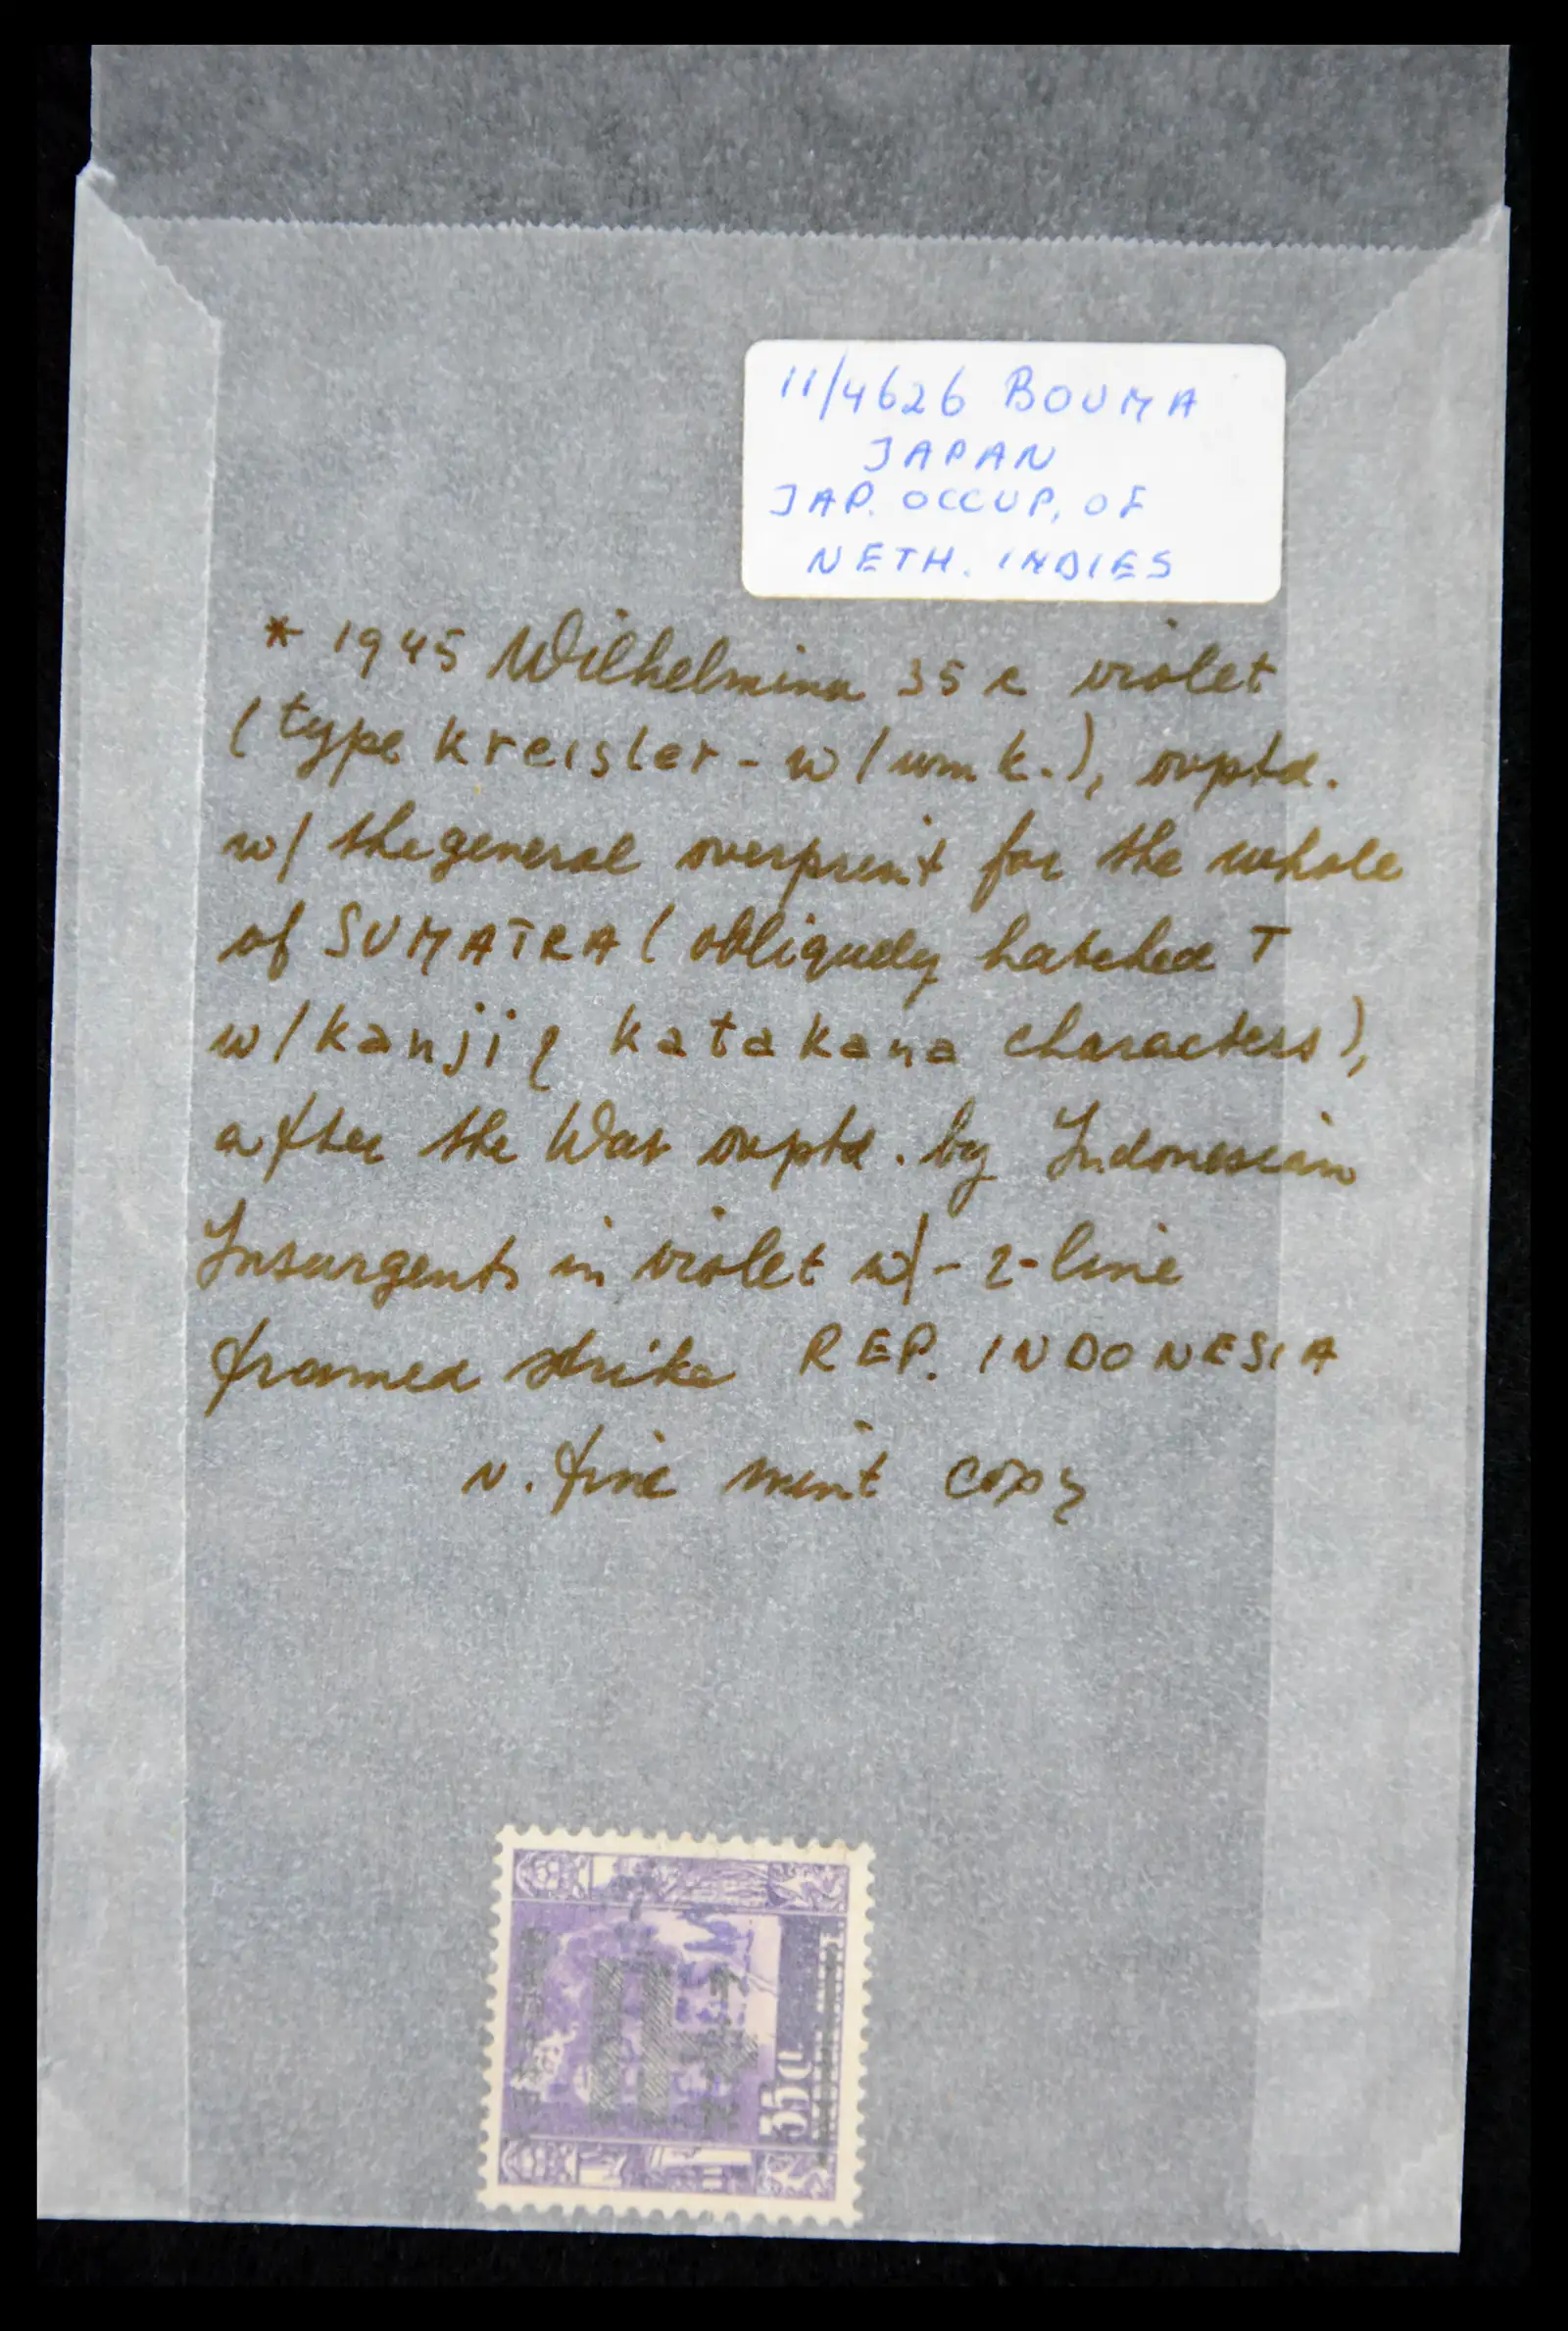 11/4626 BOUMA
JAPAN
JAP. OCCUP. OF
NETH. INDIES
* 1945 Wilhelmina 35 c violet
(type kreisler - w/wmk.), ovptd.
w/ the general overprint for the whole
of SUMATRA (obliquely hatched T
w/kanji & katakana characters),
after the War ovptd. by Indonesian
Insurgents in violet w/- 2-line
framed strike REP. INDONESIA
v. fine mint copy
35c